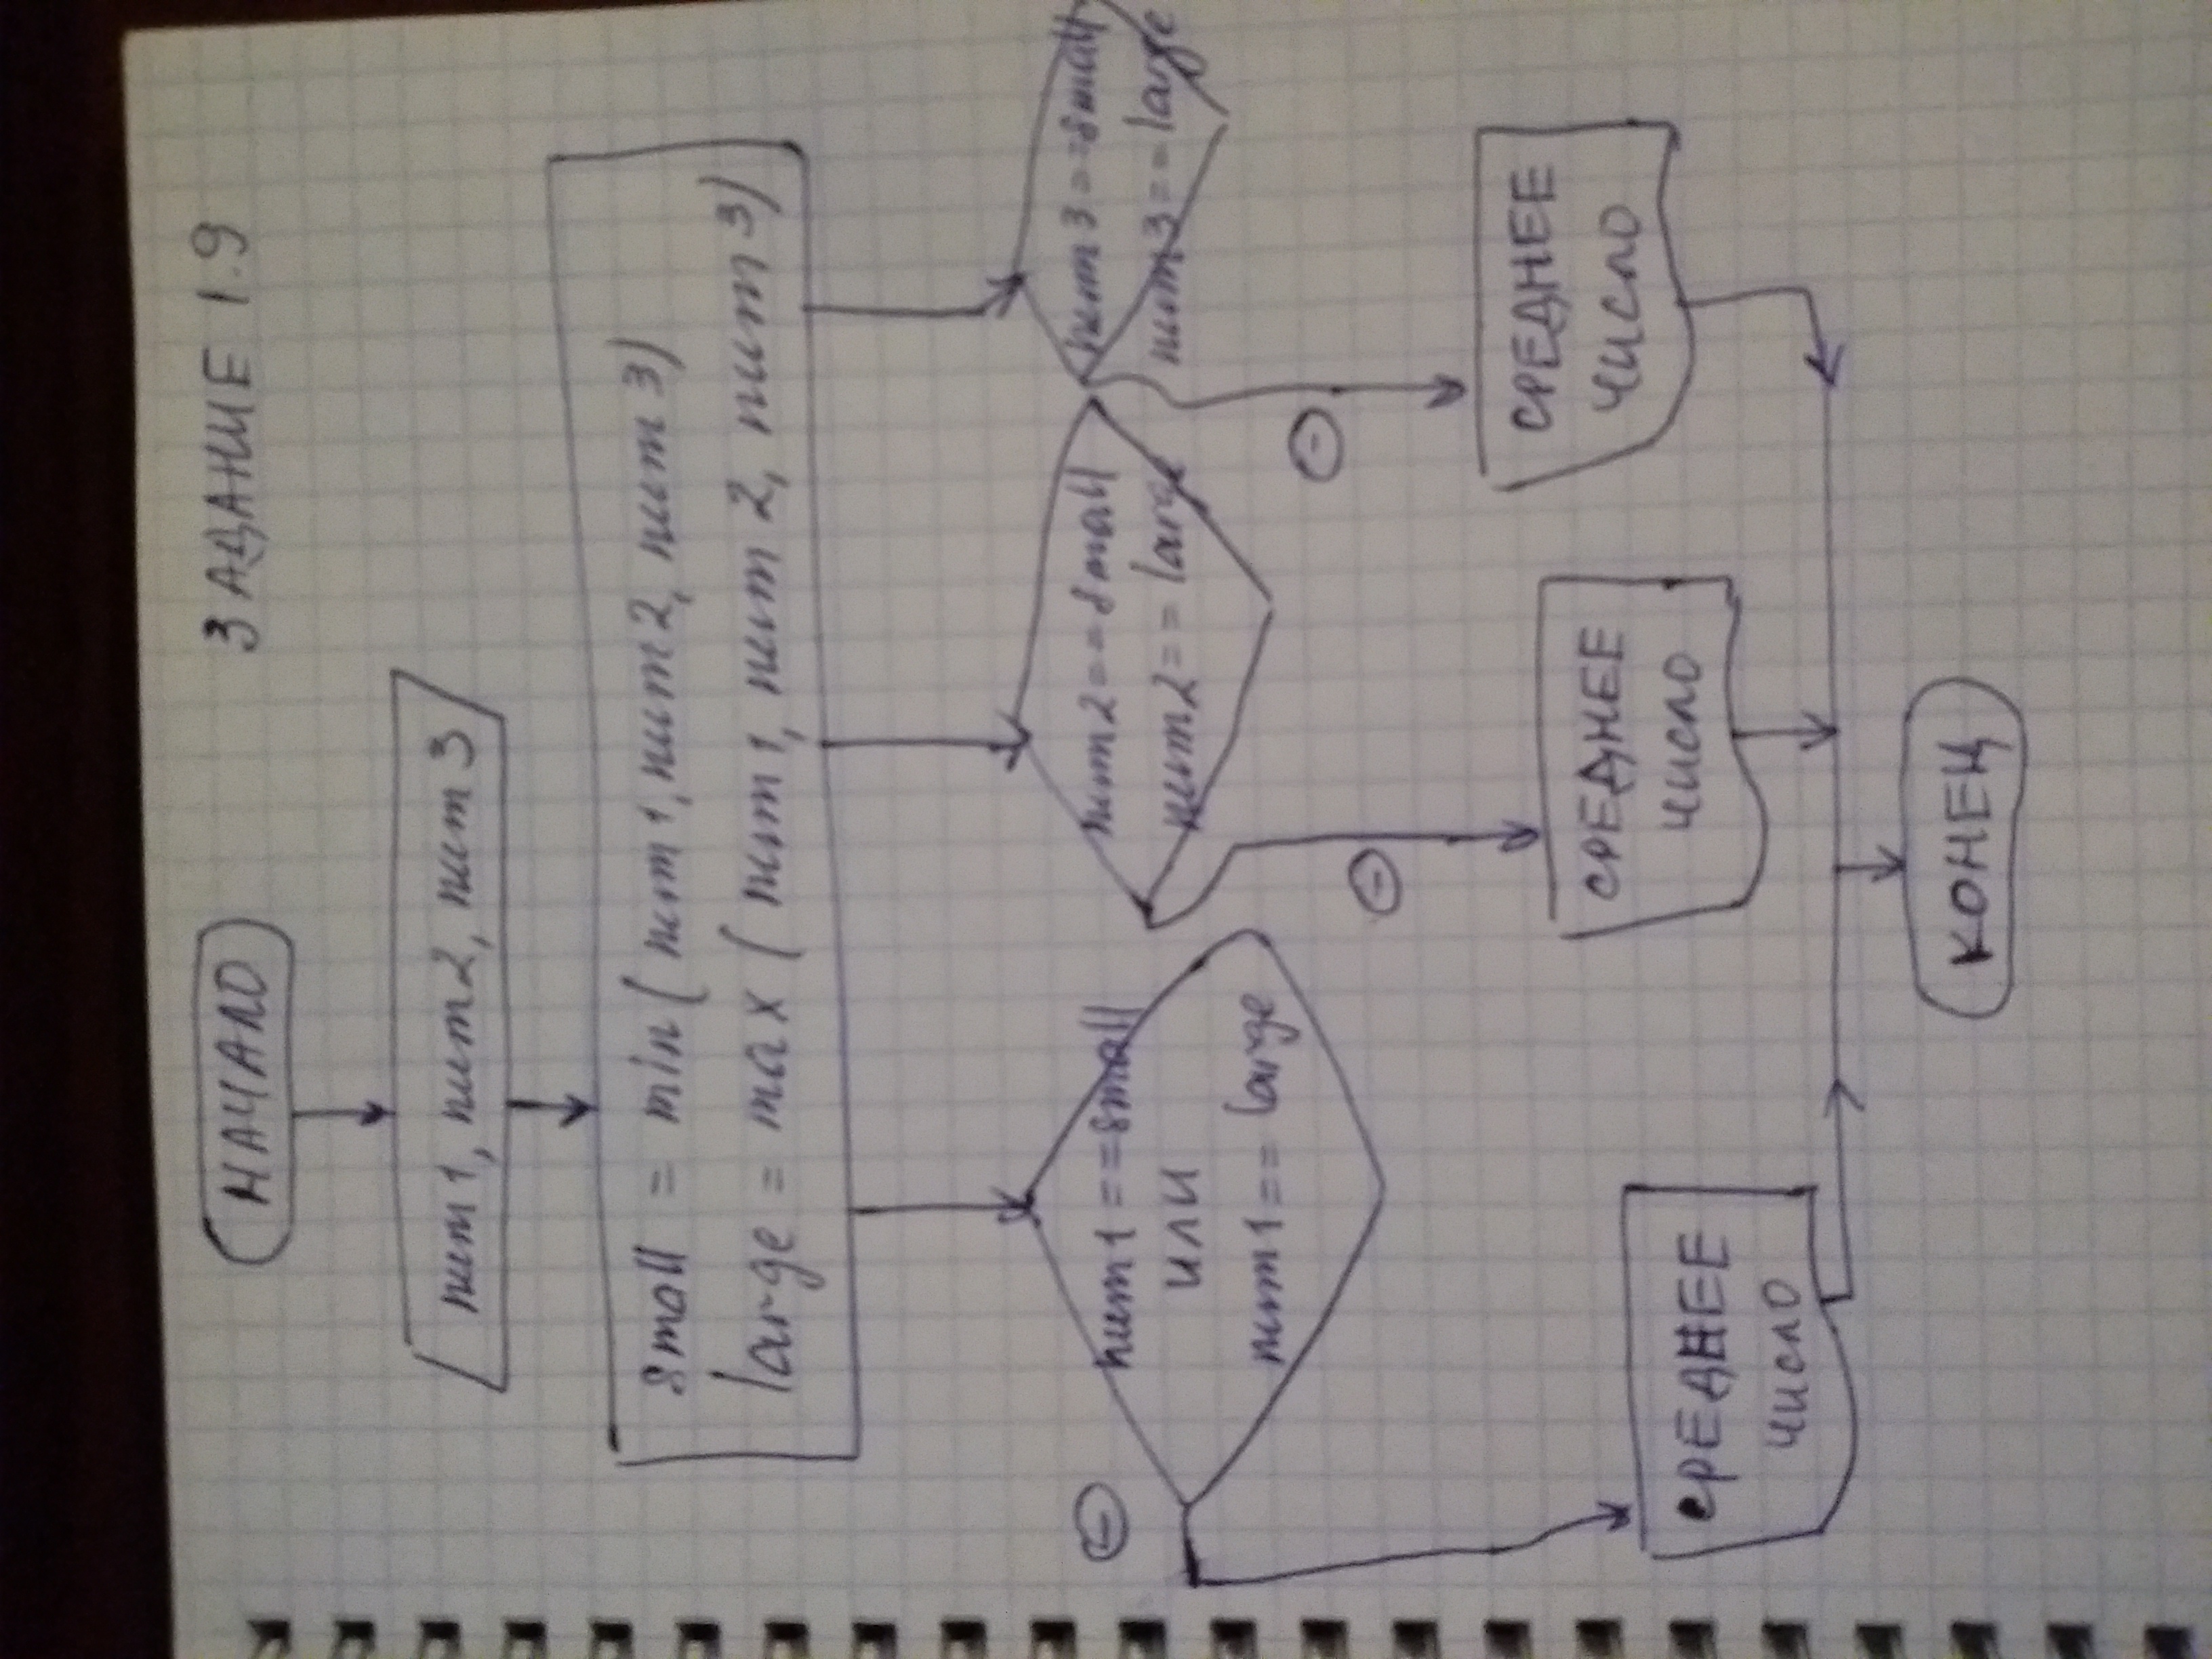 НАЧАЛО
ЗАДАНИЕ 1.9
num1, num2, num3
small = min(num1, num2, num3)
large = max(num1, num2, num3)
-
num1 == small
или
num1 == large
num2 == small
num2 == large
num3 == small
num3 == large
-
-
СРЕДНЕЕ
ЧИСЛО
СРЕДНЕЕ
ЧИСЛО
СРЕДНЕЕ
ЧИСЛО
КОНЕЦ